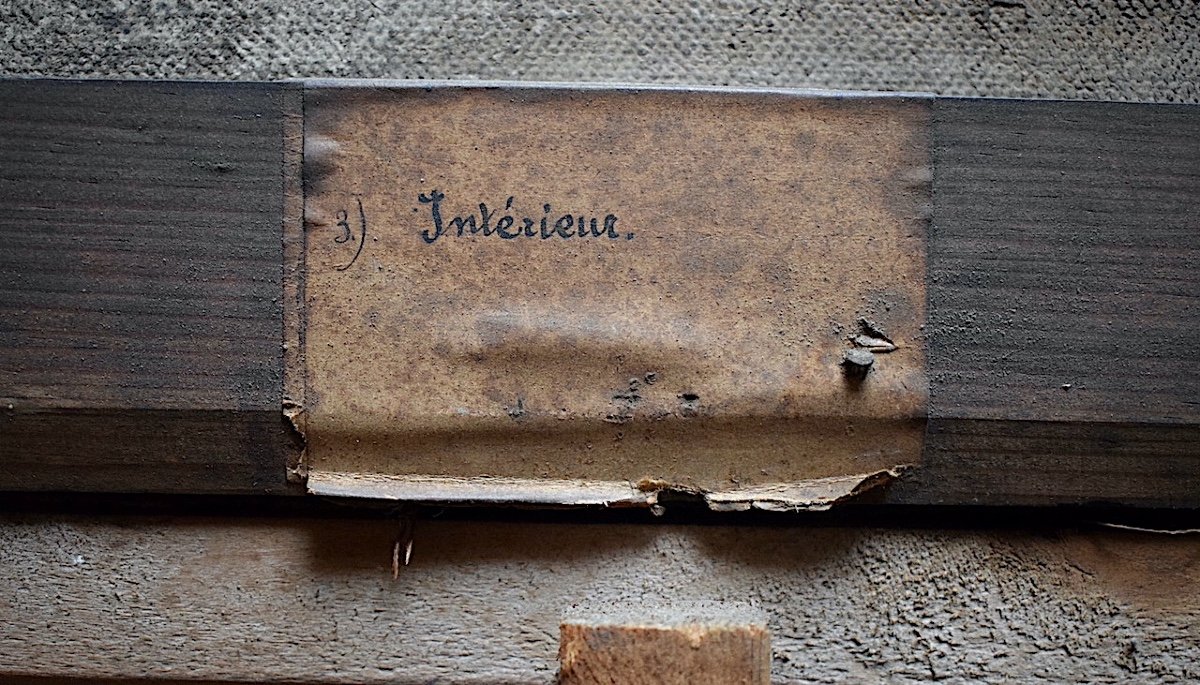 3.). Intérieur.